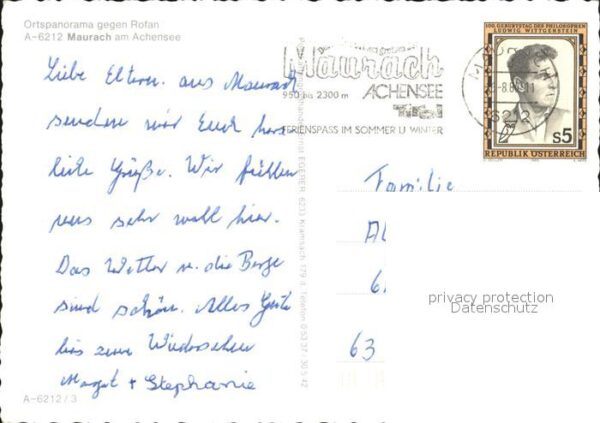 Ortspanorama gegen Rofan
A-6212 Maurach am Achensee
Liebe Eltern. aus Maurach
senden wir Euch herz
liche Grüße. Wir fühlen
uns sehr wohl hier.
Das Wetter u. die Berge
sind schön. Alles Gute
bis zum Wiedersehen
Margot + Stephanie
A-6212/3
Maurach
950 bis 2300 m ACHENSEE
Tirol
FERIENSPASS IM SOMMER U. WINTER
6212
100. GEBURTSTAG DES PHILOSOPHEN
LUDWIG WITTGENSTEIN
S5
REPUBLIK ÖSTERREICH
Familie
Al
6
63
privacy protection
Datenschutz